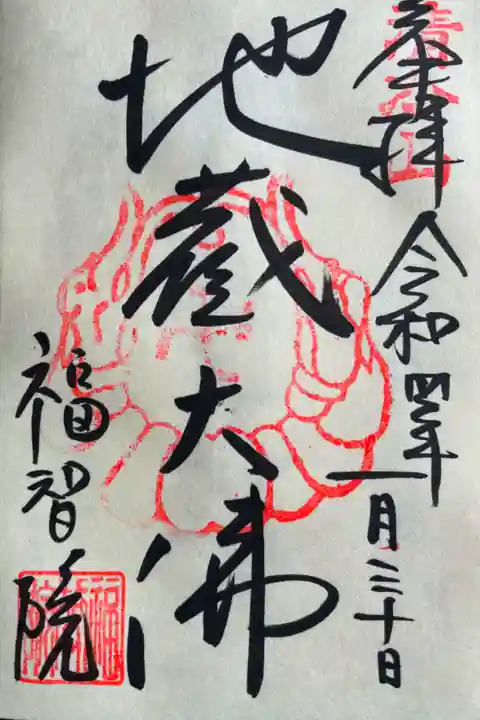 奉拝 令和四年一月三十日
地蔵大佛
福智院